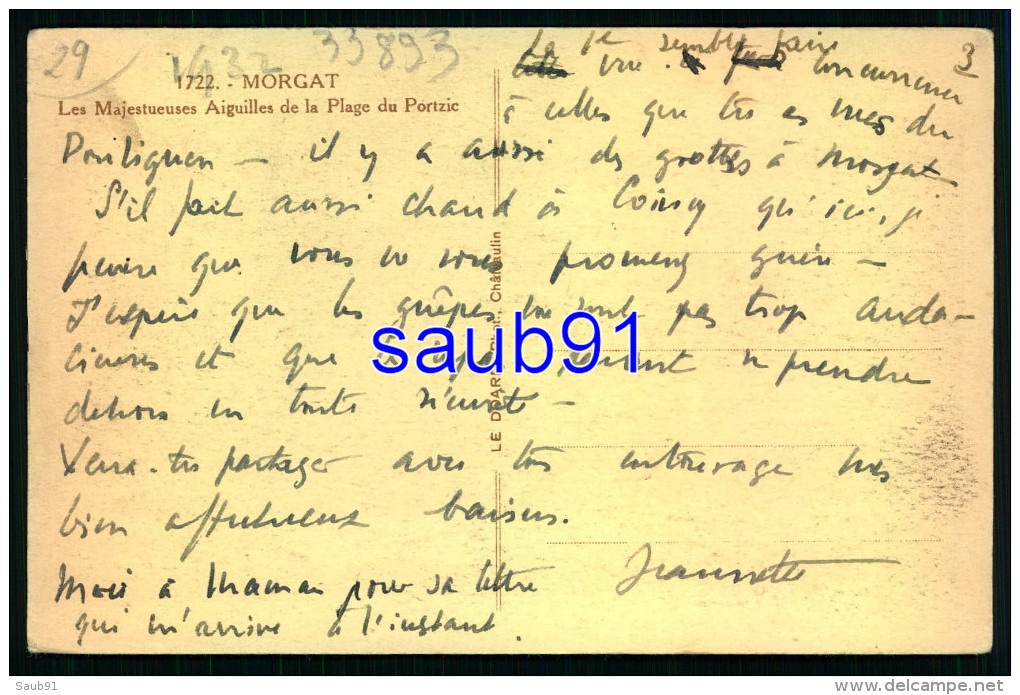 29
33893
3
1722. - MORGAT
Les Majestueuses Aiguilles de la Plage du Portzic
La 1e semble faire
vue concurrence
à celles que tu as vues du
Pouliguen - il y a aussi des grottes à Morgat
S'il fait aussi chaud à Coincy qu'ici, je
pense que vous ne vous promenez guère -
J'espère que les guêpes ne sont pas trop auda-
cieuses et que peuvent prendre
dehors en toute sécurité -
Veux-tu partager avec ton entourage mes
bien affectueux baisers.
Jeannette
Merci à Maman pour sa lettre
qui m'arrive à l'instant.
LE DOARÉ Châteaulin
saub91
Saub91
www.delcampe.net